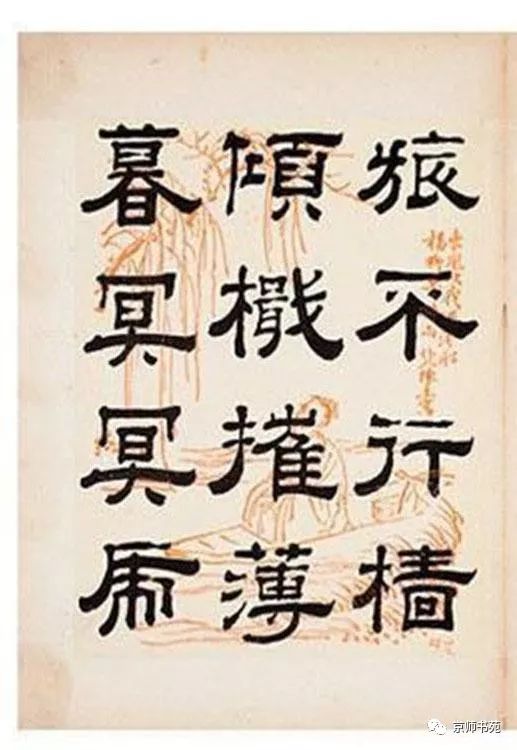 旅不行檣
傾檝摧薄
暮冥冥虎
京师书苑